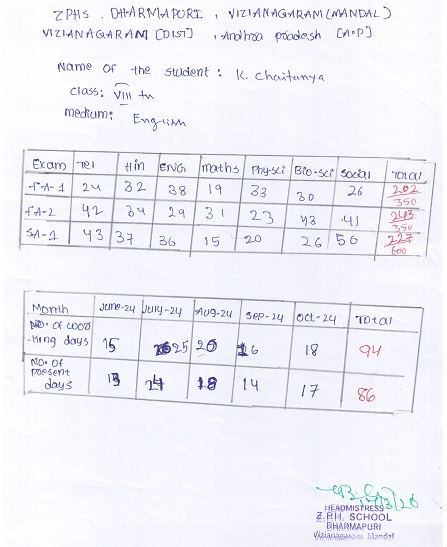 ZPHS. DHARMAPURI, VIZIANAGARAM (MANDAL)
VIZIANAGARAM [DIST], Andhra pradesh [A.P]
Name of the student: K. Chaitanya
class: VIII th
medium: English
Exam Tel Hin ENG maths Phy-sci Bio-sci social TOTAL
FA-1 24 32 38 19 33 30 26 202/350
FA-2 42 34 29 31 23 43 41 243/350
SA-1 43 37 36 15 20 26 50 227/600
Month June-24 July-24 Aug-24 Sep-24 Oct-24 Total
NO. of woor-king days 15 25 20 16 18 94
NO. of present days 13 24 18 14 17 86
HEADMISTRESS
Z.P.H. SCHOOL
DHARMAPURI
Vizianagaram Mandal